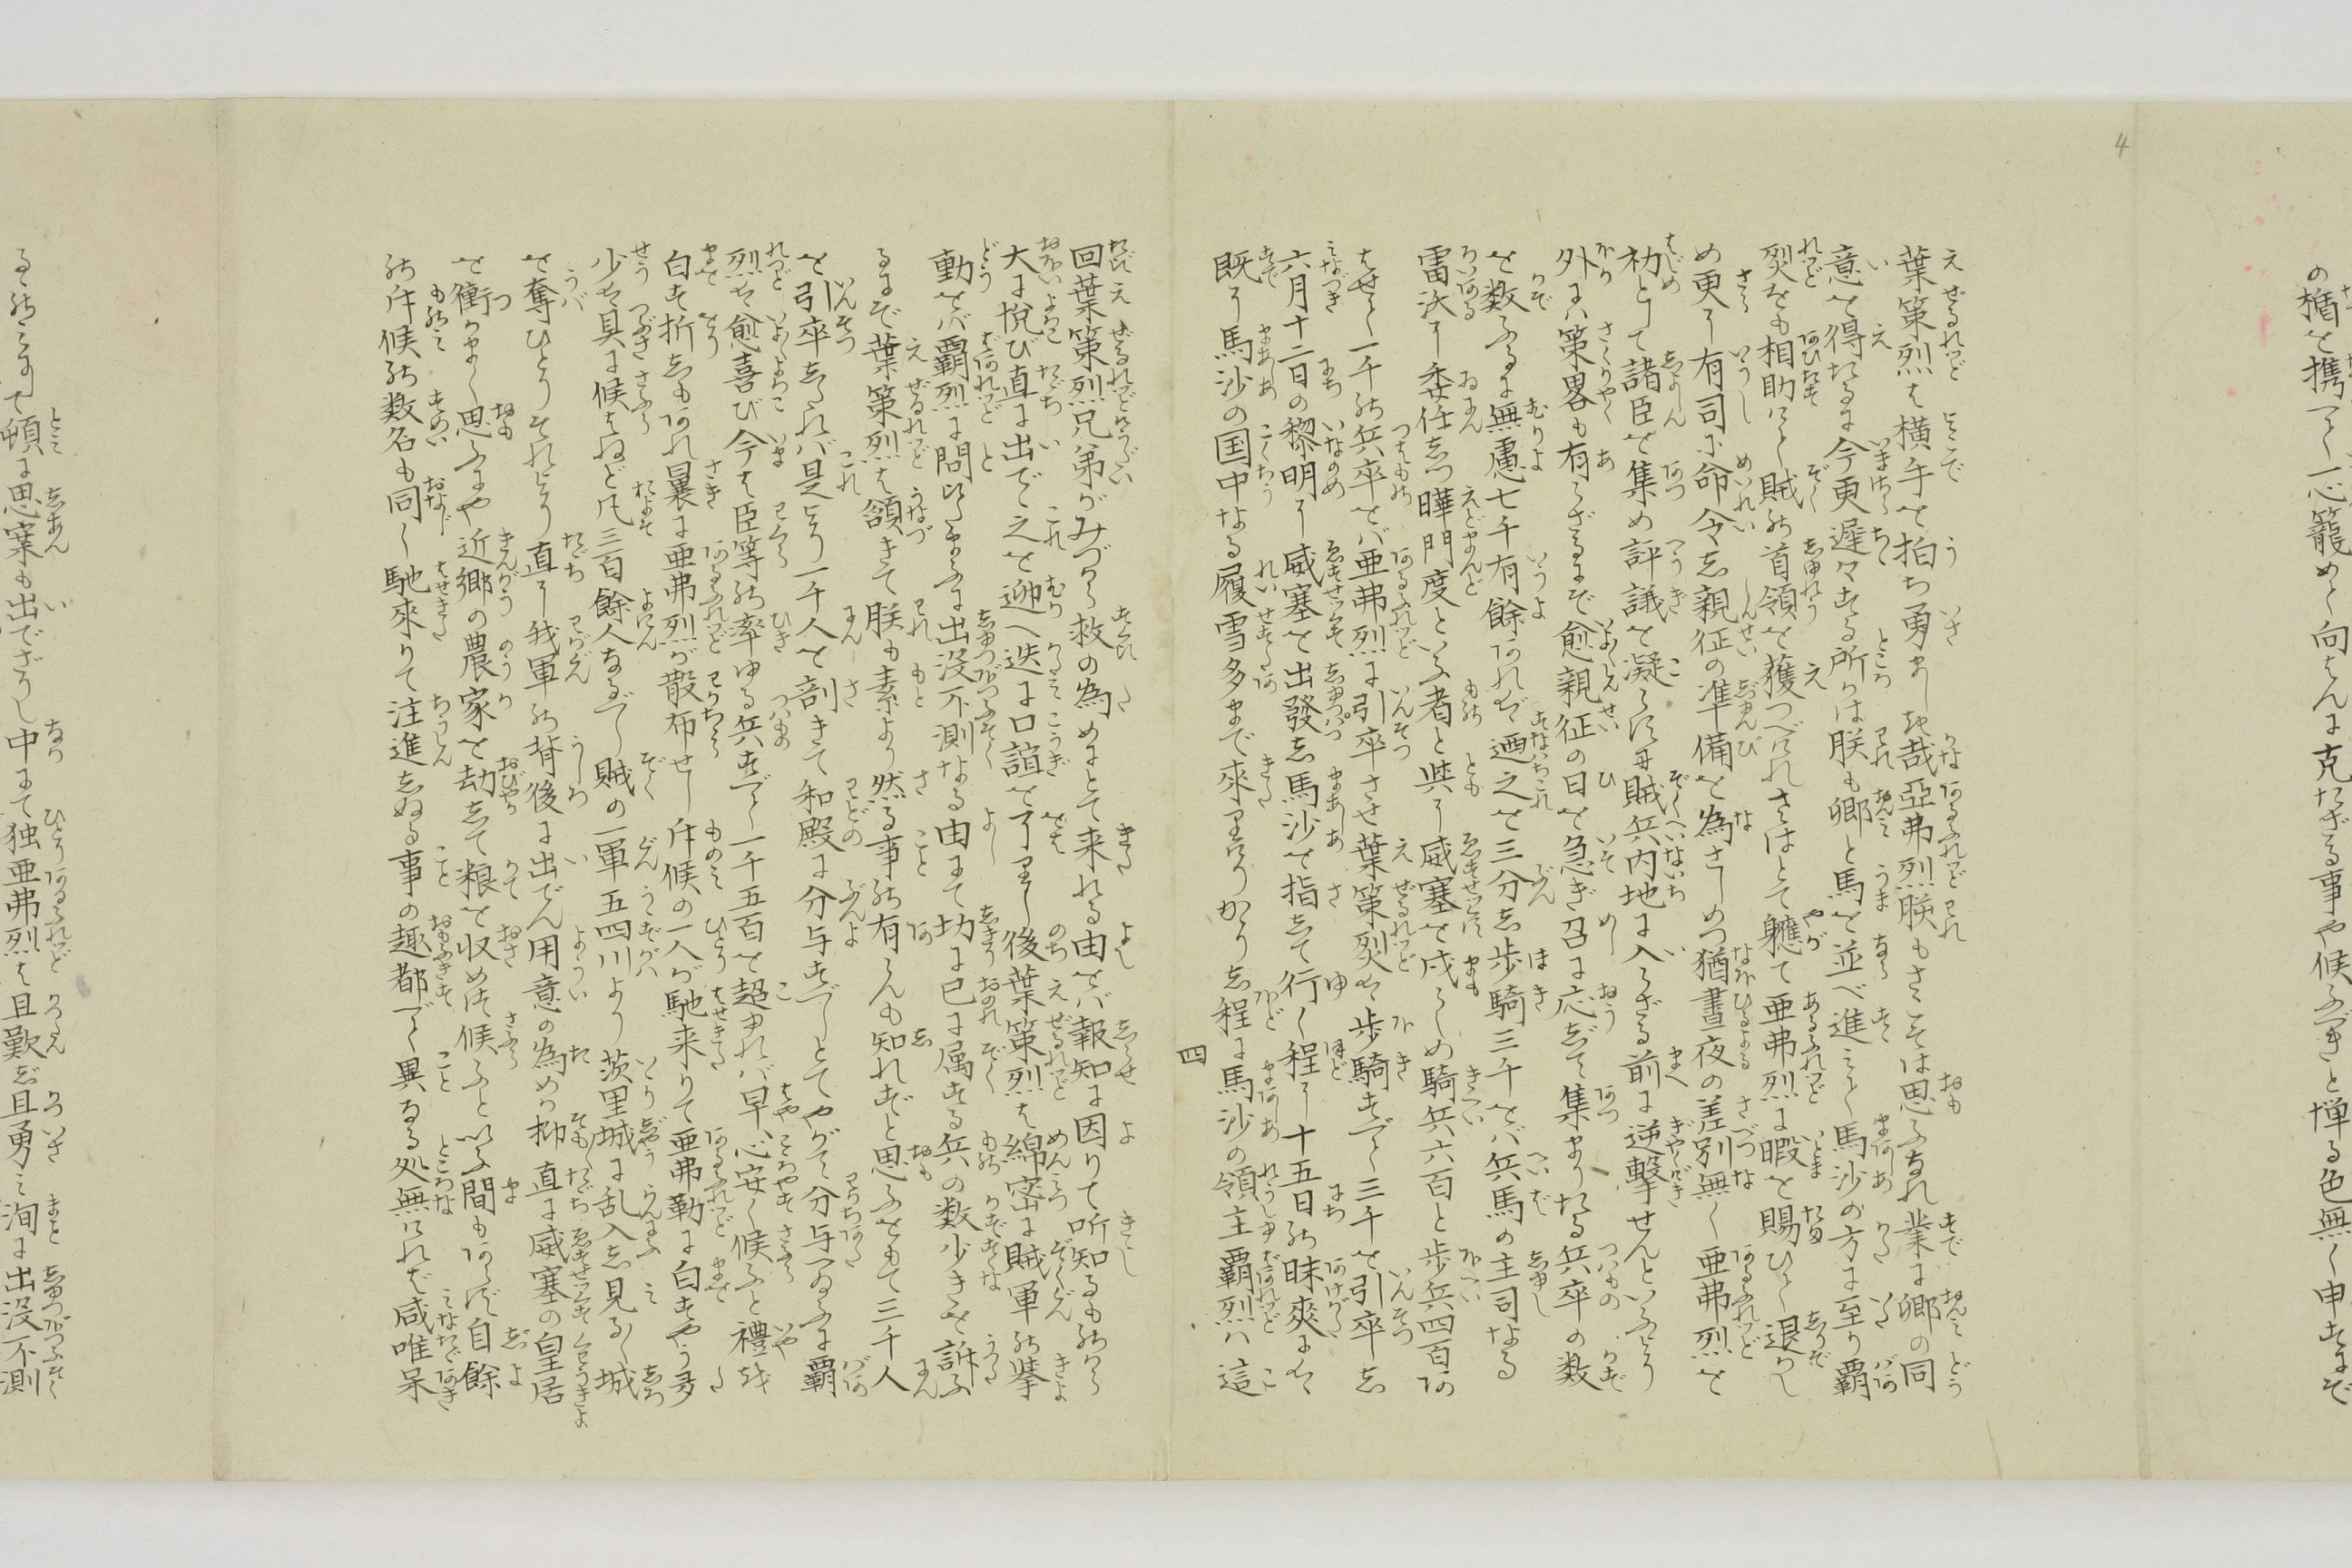 の楯を携へて一心籠めて向はんに克たざる事や候ふべきと憚る色無く申すにぞ
4
葉策烈は横手を拍ち勇ましき哉亞弗烈朕もさこそは思ふなれ業に卿の同
意を得たるに今更遅々する所かは朕も卿と馬を並べ進みて馬沙の方に至り覇
烈をも相助けて賊の首領を獲つべけれさはとて軈て亜弗烈に暇を賜ひて退かし
め更に有司に命令し親征の準備を為さしめつ猶晝夜の差別無く亜弗烈を
初として諸臣を集め評議を凝らすに賊兵内地に入らざる前に逆撃せんといふより
外に策畧も有らざるにぞ愈親征の日を急ぎ召に応じて集まりたる兵卒の数
を数ふるに無慮七千有餘あれば迺之を三分し歩騎三千をバ兵馬の主司なる
雷汰に委任しつ曄門度といふ者と共に威塞を戍らしめ騎兵六百と歩兵四百あ
はせて一千の兵卒をバ亜弗烈に引卒させ葉策烈は歩騎すべて三千を引卒し
六月十二日の黎明に威塞を出發し馬沙を指して行く程に十五日の昧爽には
既に馬沙の国中なる履雪多まで來りけりかゝりし程に馬沙の領主覇烈ハ這
四
回葉策烈兄弟がみづから救の為めにとて来れる由をバ報知に因りて听知るものから
大に悦び直に出でて之を迎へ迭に口誼を了りし後葉策烈は綿密に賊軍の挙
動をバ覇烈に問けるに出没不測なる由にて坊に已に属する兵の数少きを訴ふ
るにぞ葉策烈は頷きて朕も素より然る事の有らんも知れずと思ふをもて三千人
を引卒したれバ是より一千人を割きて和殿に分与すべしとてやがて分与へるに覇
烈は愈喜び今は臣等の率ゆる兵すべて一千五百を超れバ早心安く候ふと禮を
白す折しもあれ曩に亜弗烈が散布せし斥候の一人が馳来りて亜弗勒に白すやう多
少は具に候はねど凡三百餘人なるべし賊の一軍五四川より茨里城に乱入し見る〳〵城
を奪ひとりそれより直に我軍の背後に出でん用意の為めか抑直に威塞の皇居
を衝かまく思ふにや近郷の農家を劫して粮を収めつゝ候ふといふ間もあらず自餘
の斥候の数名も同じく馳來りて注進しぬる事の趣都べて異なる処無ければ咸唯呆
るゝのみにて頓に思案も出でざりし中にて独亜弗烈は且歎じ且勇み洵に出没不測